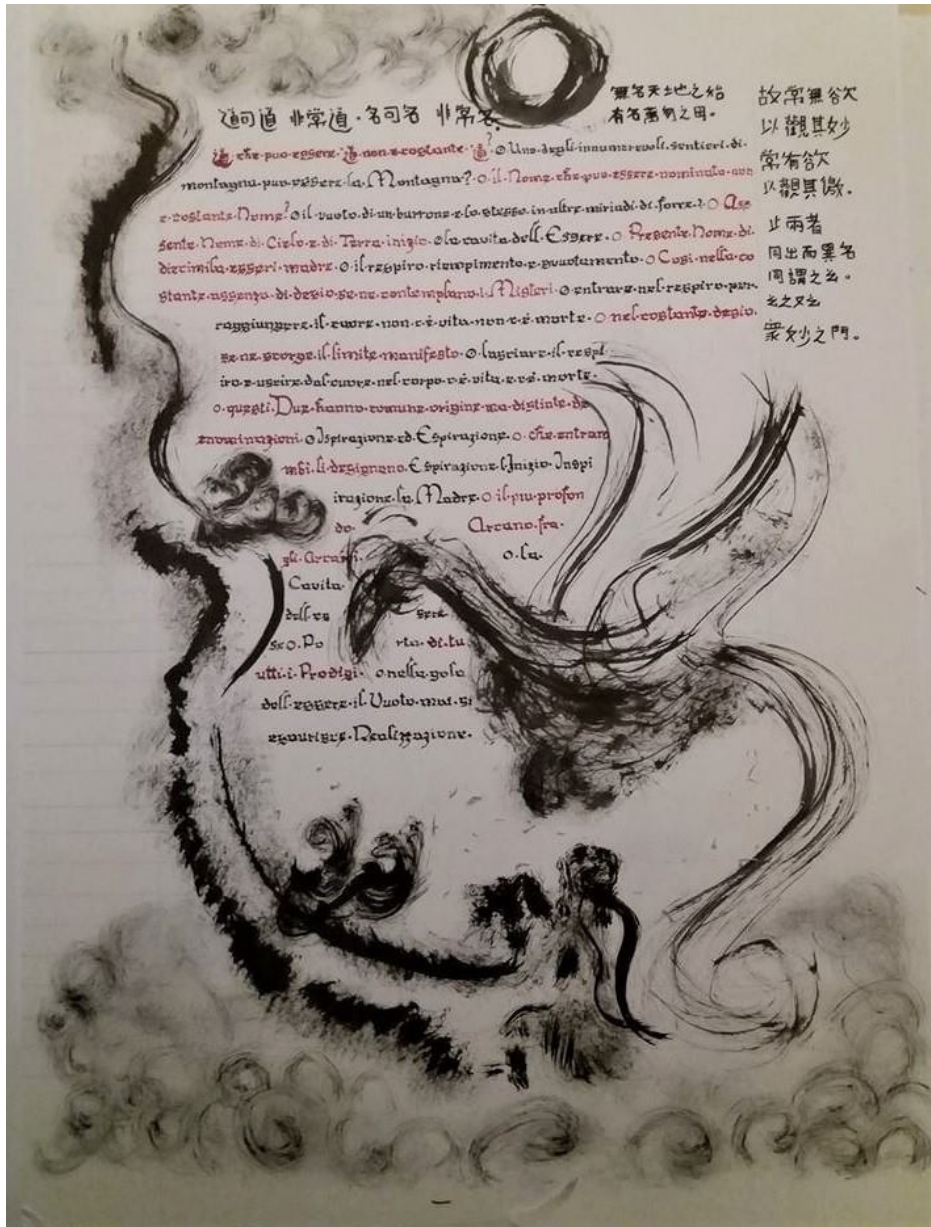 道可道 非常道. 名可名 非常名.
無名天地之始
有名萬物之母.
故常無欲
以觀其妙
常有欲
以觀其徼.
此兩者
同出而異名
同謂之玄.
玄之又玄
衆妙之門.
道·che·puo·essere·道·non·e·costante·道? o Uno·degli·innumerevoli·sentieri·di·
montagna·puo·essere·la·Montagna? o il·Nome·che·puo·essere·nominato·non
e·costante·Nome? o il·vuoto·di·un·burrone·e·lo·stesso·in·altre·miriadi·di·forre? o As
sente·Nome·di·Cielo·e·di·Terra·inizio· o la·cavita·dell·Essere· o Presente·Nome·di·
diecimila·esseri·madre· o il·respiro·riempimento·e·svuotamento· o Cosi·nella·co
stante·assenza·di·desio·se·ne·contemplano·i·Misteri· o entrare·nel·respiro·per·
raggiungere·il·cuore·non·c·è·vita·non·c·è·morte· o nel·costante·desio·
se·ne·scorge·il·limite·manifesto· o lasciare·il·respi
iro·e·uscire·dal·cuore·nel·corpo·v·è·vita·e·v·è·morte·
o·questi·Due·hanno·comune·origine·ma·distinte·de
enominazioni· o Ispirazione·ed·Espirazione· o che·entram
mbi·li·designano·Espirazione·l·Inizio·Inspi
irazione·la·Madre· o il·piu·profon
do· Arcano·fra·
gli·Arcani· o·la·
Cavita·
dell·es sere
se o·Po rta·di·tu
utti·i·Prodigi· o nella·gola
dell·essere·il·Vuoto·mai·si
esaurisce·Realizzazione·
一